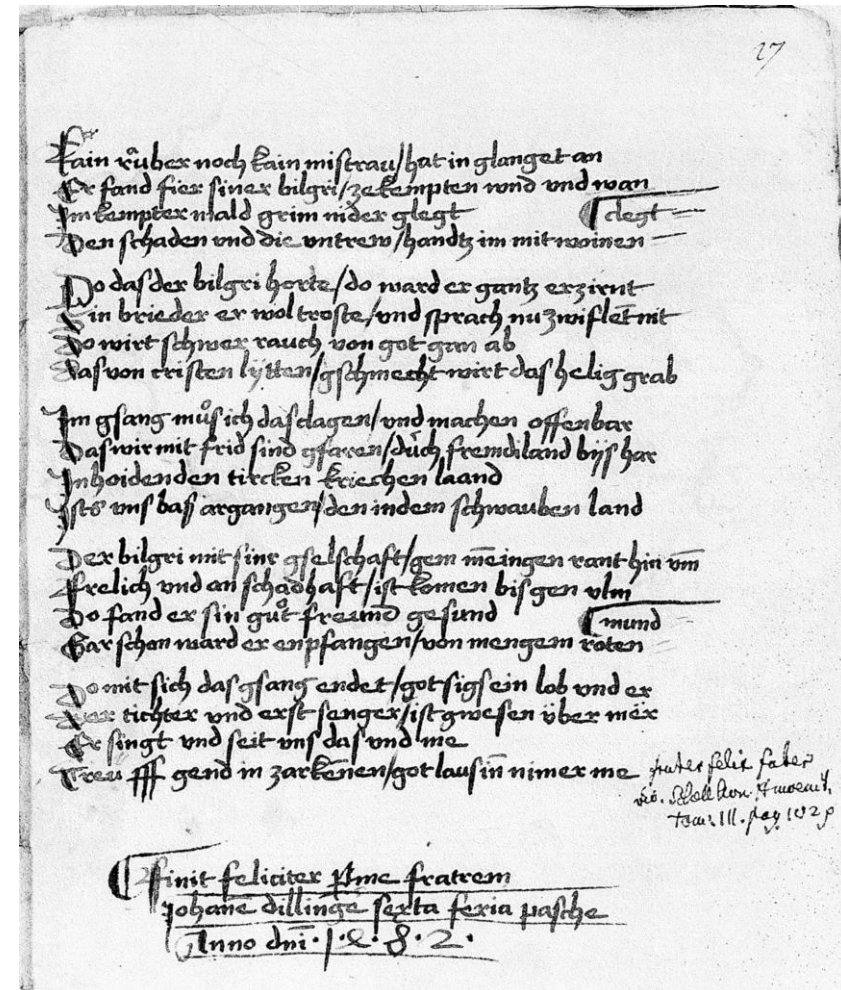 27
kain rauber noch kain mistrau/hat in glanget an
Er fand fier siner bilgri/ze kempten wnd vnd wan
Im kempter wald grim nider glegt
clegt
Den schaden vnd die vntrew/handtz im mit woinen
Do das der bilgri horte/do ward er gantz erzirnt
Sin brieder er wol troste/vnd sprach nu zwiflet nit
Do wirt schwer rauch von got gan ab
Das von cristen lytten/gschmecht wirt das helig grab
Im gsang muͦs ich das clagen/vnd machen offenbar
Das wir mit frid sind gfaren/durch fremdi land bijs har
In hoidenden tircken kriechen laand
Ists vns bass argangen/den in dem schwauben land
Der bilgri mit sinr gselschaft/gem meingen rant hin vm̄
frelich vnd an schadhaft/ist komen bis gen vlm
Do fand er sin guͦt freund gesund
mund
Gar schon ward er enpfangen/von mengem roten
Do mit sich das gsang endet/got sigs ein lob vnd er
Der tichter vnd erst senger/ist gwesen über mer
Er singt vnd seit vns das vnd me
Trew fff gend in zarkenen/got laus in nimer me
frater felix faber
tom: III. pag
finit feliciter fratrem
Johanē dillingē sexta feria pasche
Anno dn̄i · 1 · 8 · 2 ·